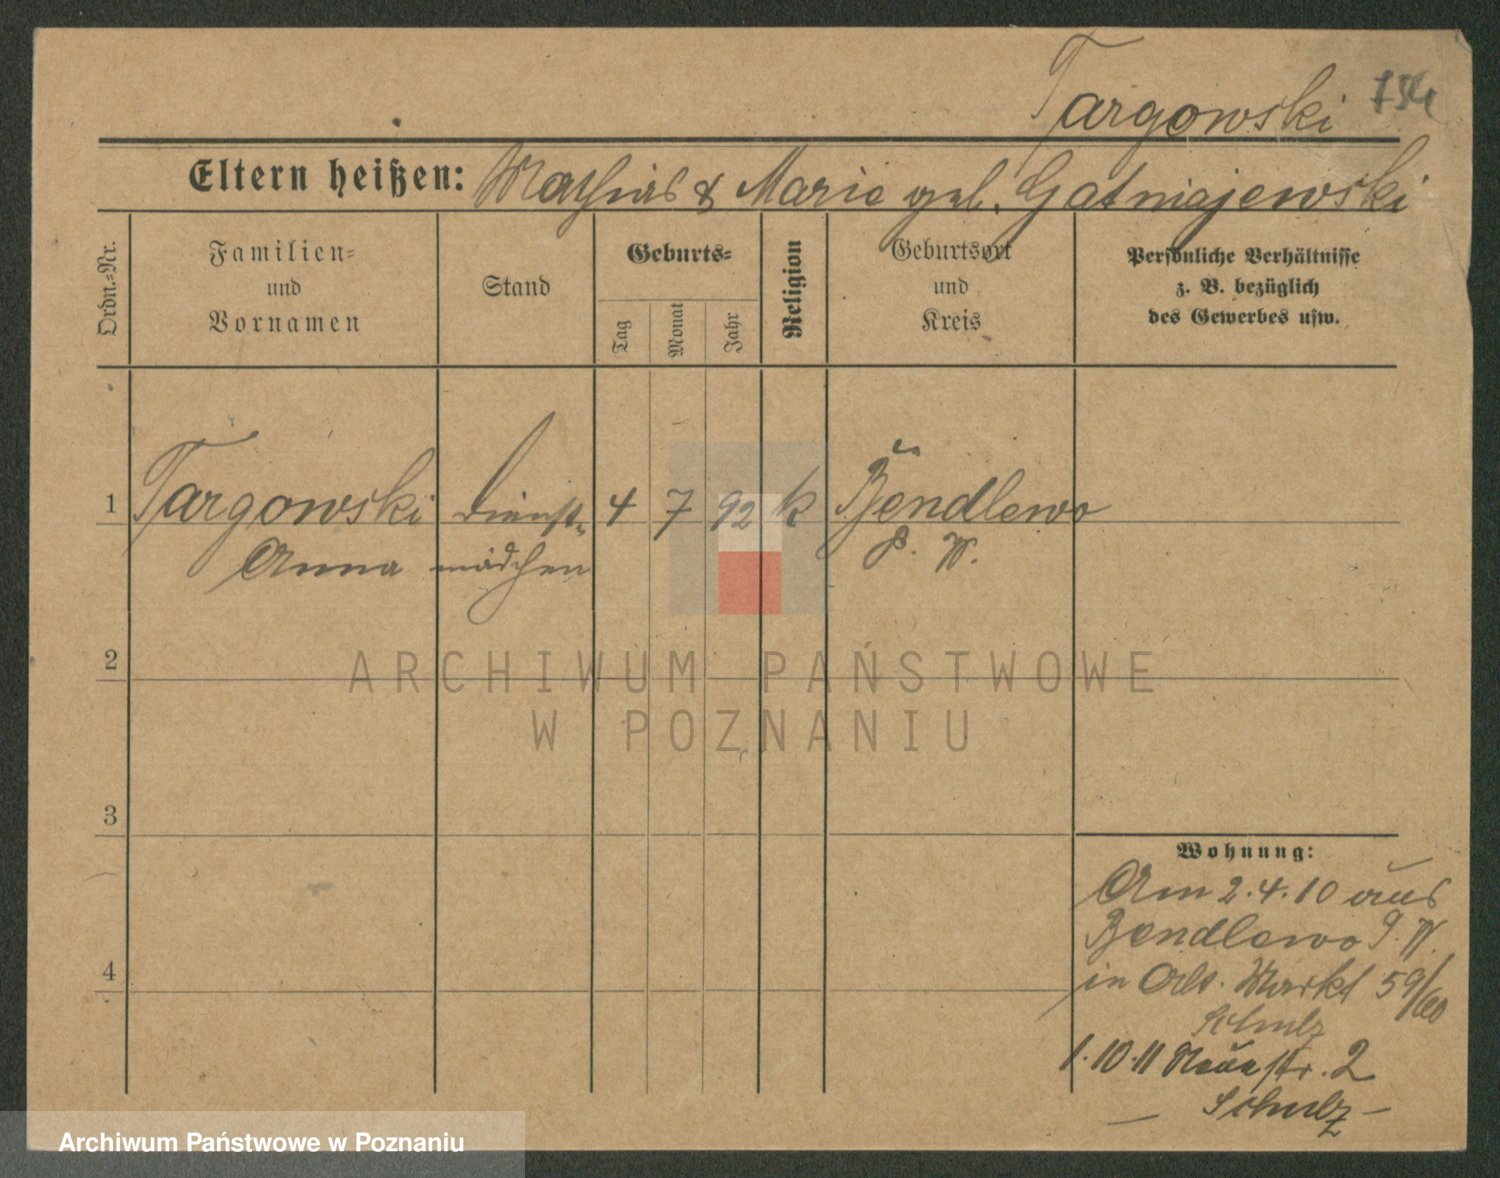 Targowski 734
Eltern heißen: Mathias & Marie geb. Gatniajewski
Ordn.=Nr.
Familien=
und
Vornamen
Stand
Geburts=
Tag
Monat
Jahr
Religion
Geburtsort
und
Kreis
Persönliche Verhältnisse
z. B. bezüglich
des Gewerbes usw.
1 Targowski Dienst- 4 7 92 k Bendlewo
Anna mädchen P. W.
2
ARCHIWUM PAŃSTWOWE
W POZNANIU
3
Wohnung:
Am 2.4.10 aus
Bendlewo P. W.
4
in Markt 59/60
Schulz
1.10.11 Neue str. 2
Schulz
Archiwum Państwowe w Poznaniu